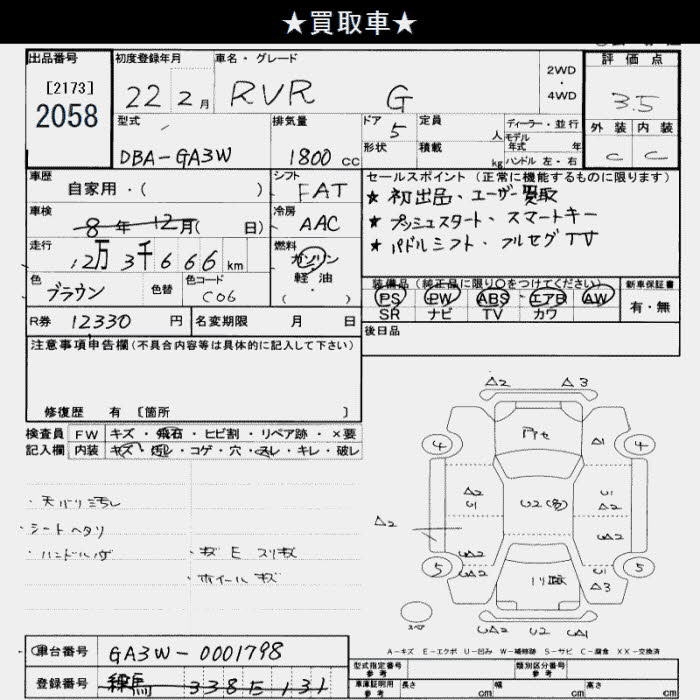 ★買取車★
出品番号
[2173]
2058
初度登録年月
22 2月
車名・グレード
RVR G
2WD
・
4WD
評価点
3.5
外装 内装
C C
型式
DBA-GA3W
排気量
1800 cc
ドア 5
形状
定員 人
積載 kg
ディーラー・並行
モデル
年式 年
ハンドル 左・右
車歴
自家用・( )
シフト
FAT
セールスポイント (正常に機能するものに限ります)
★ 初出品・ユーザー買取
★ プッシュスタート、スマートキー
★ パドルシフト・フルセグTV
車検
8年 12月( 日)
冷房
AAC
走行
12万3千666km
燃料
ガソリン
軽・油
( )
色
ブラウン
色替
色コード
C06
装備品 (純正品に限り○をつけてください)
PS PW ABS エアB AW
SR ナビ TV カワ
新車保証書
有・無
R券 12330 円
名変期限 月 日
後日品
注意事項申告欄 (不具合内容等は具体的に記入して下さい)
修復歴 有 〔箇所 〕
検査員
記入欄
FW キズ・飛石・ヒビ割・リペア跡・×要
内装 キズ・汚レ・コゲ・穴・スレ・キレ・破レ
・天バリ汚レ
・シートヘタリ
・ハンドルハゲ
・キズ E スリキズ
・ホイールキズ
△2 △3
4 4
△1
△2
U1
U2(多)
U1
△2
△2
5 5
U1
△3
スペア
U2
A-キズ E-エクボ U-凹み W-補修跡 S-サビ C-腐食 XX-交換済
車台番号
GA3W-0001798
登録番号
練馬 338 5 131
型式指定番号
参考
類別区分番号
参考
車庫証明用
参考
長さ cm 幅 cm 高さ cm